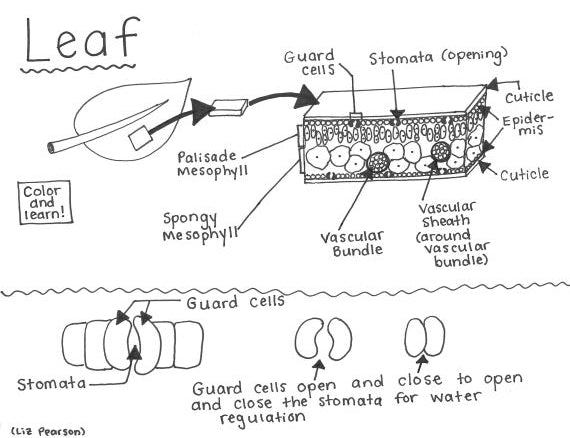 Leaf
Guard
cells
Stomata (opening)
Cuticle
Epider-
mis
Cuticle
Palisade
Mesophyll
Color
and
learn!
Spongy
Mesophyll
Vascular
Bundle
Vascular
Sheath
(around
vascular
bundle)
Guard cells
Stomata
Guard cells open and close to open
and close the stomata for water
regulation
(Liz Pearson)